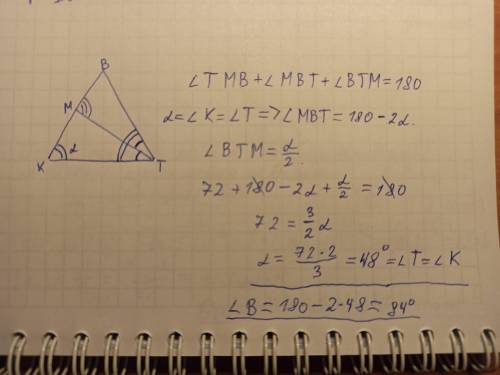 B
M
α
K
T
∠TMB+∠MBT+∠BTM=180
α=∠K=∠T=>∠MBT=180-2α.
∠BTM=α/2.
72+180-2α+α/2=180
72=3/2α
α=72·2/3=48°=∠T=∠K
∠B=180-2·48=84°